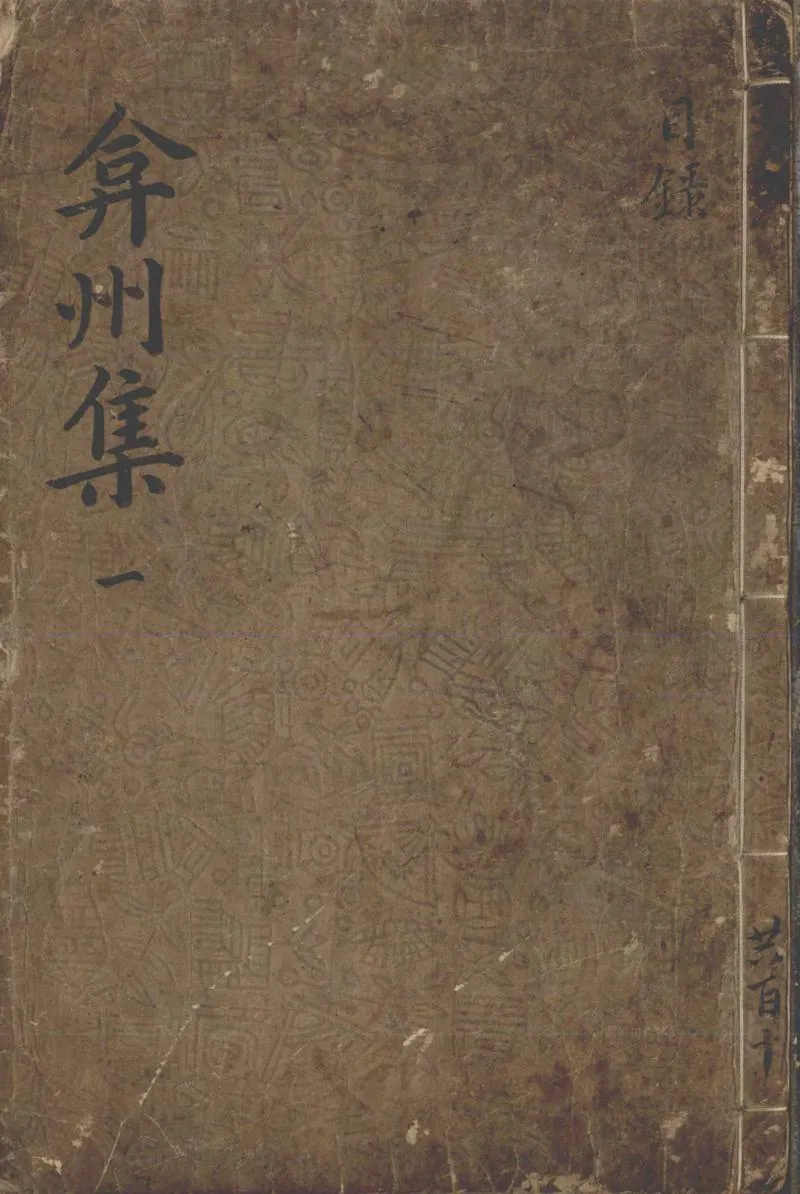 共百十
目錄
弇州集 一